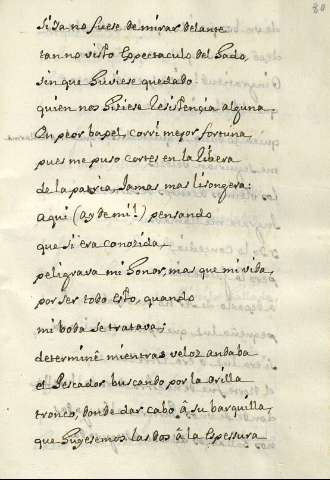 80
si ya no fuese de mirar delante
tan no visto Espectaculo del Hado,
sin que huviese quedado
quien nos hiciese Resistençia alguna.
En peor bajel, corrí mejor fortuna,
pues me puso cortes en la Ribera
de la patria Jamas mas lisongera:
aqui (ay de mi!) pensando
que si era conozida,
peligrava mi honor, mas que mi vida,
por ser todo esto, quando
mi boda se tratava;
determinê mientras veloz andaba
el Pescador buscando por la orilla
tronco, donde dar cabo â su barquilla,
que huyesemos las dos â la Espessura